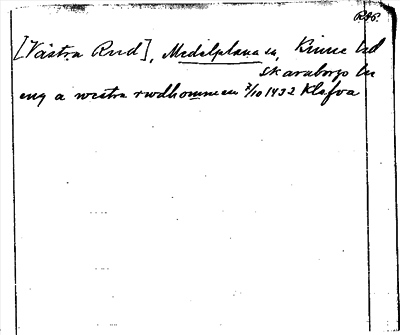 RAp.
[Västra Rud], Medelplana sn, Kinne hd
Skaraborgs län
eng a wæstra rwdhommen 2/10 1432 Klafva